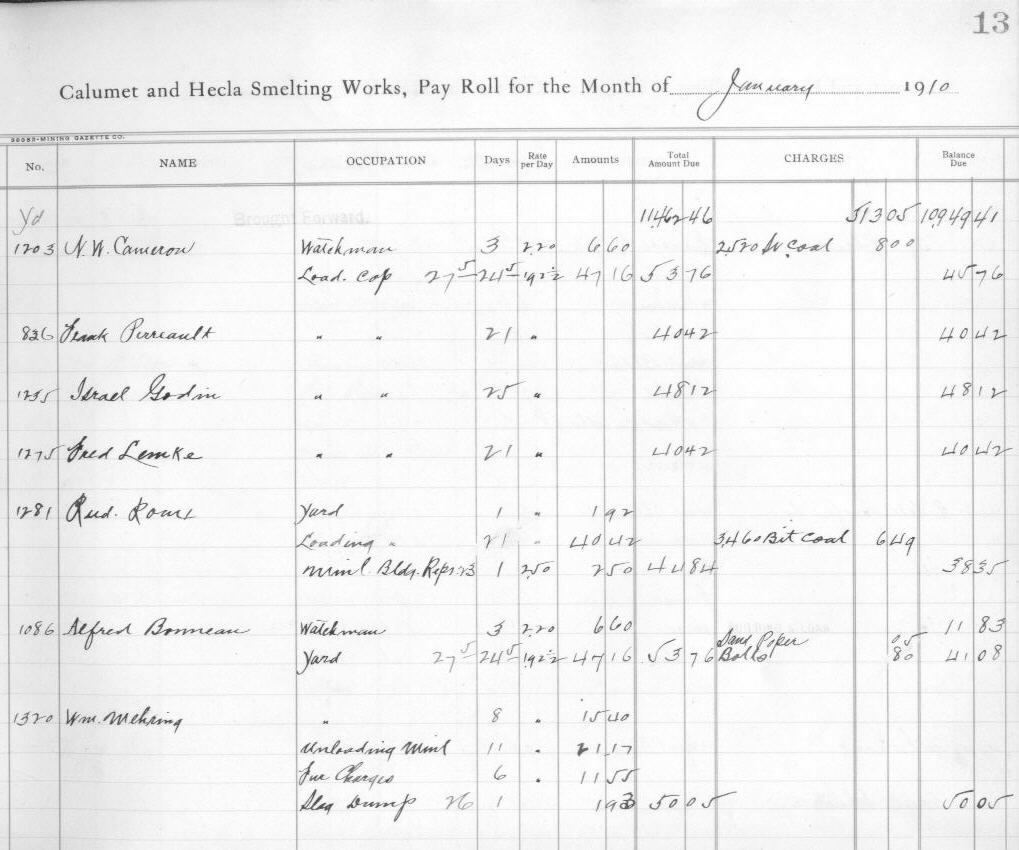 13
Calumet and Hecla Smelting Works, Pay Roll for the Month of January 1910
90083-MINING GAZETTE CO.
No. NAME OCCUPATION Days Rate per Day Amounts Total Amount Due CHARGES Balance Due
Yd Brought Forward. 11462 46 513 05 10949 41
1203 N. W. Cameron Watchman 3 2.20 6 60 2520 coal 8 00
Load. Cop 27 5 24 5 1 92 ½ 47 16 53 76 45 76
836 Frank Perreault " " 21 " 40 42 40 42
1235 Israel Godin " " 25 " 48 12 48 12
1275 Fred Lemke " " 21 " 40 42 40 42
1281 Rud. Yard 1 " 1 92
Loading " 21 " 40 42 3,460 Bit Coal 6 49
Minl. Bldg. Reps 23 1 2.50 2 50 44 84 38 35
1086 Alfred Bonneau Watchman 3 2.20 6 60 11 83
Yard 27 5 24 5 1 92 ½ 47 16 53 76 05 80 41 08
1320 Wm. Mehring " 8 " 15 40
Unloading Minl 11 " 21 17
Fur Charges 6 " 11 55
Slag Dump 26 1 1 93 50 05 50 05